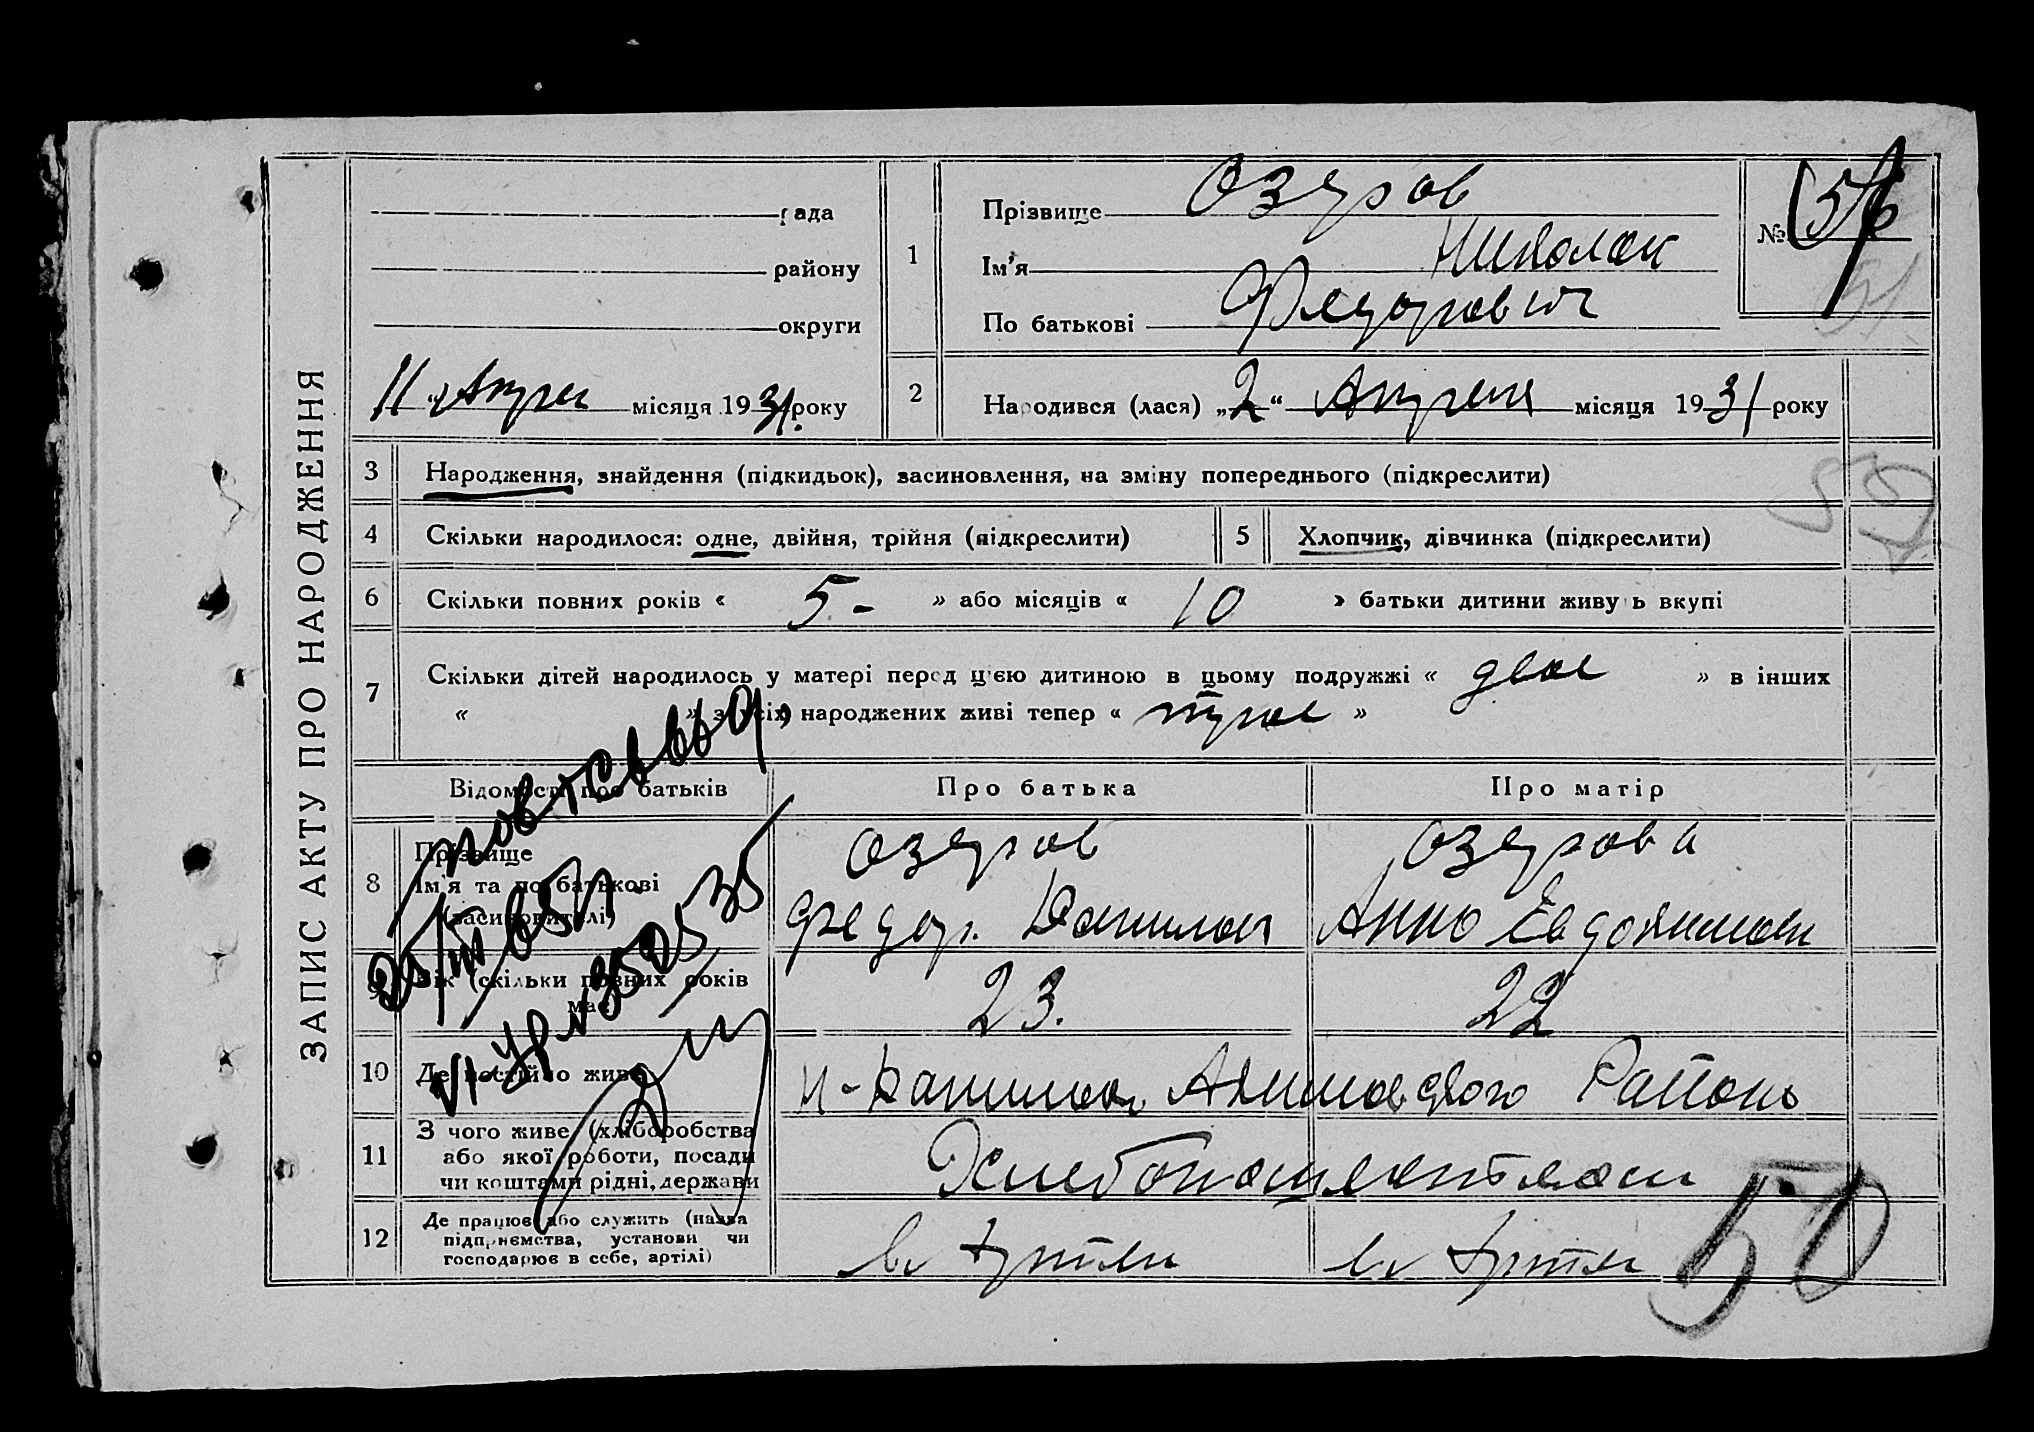 ЗАПИС АКТУ ПРО НАРОДЖЕННЯ
рада
району
округи
11 Апреля місяця 1931 року
1
Прізвище Озеров
Ім'я Николай
По батькові Федорович
№
2
Народився (лася) „2“ Апреля місяця 1931 року
3 Народження, знайдення (підкидьок), засиновлення, на зміну попереднього (підкреслити)
59
4 Скільки народилося: одне, двійня, трійня (підкреслити)
5 Хлопчик, дівчинка (підкреслити)
6 Скільки повних років « 5 - » або місяців « 10 » батьки дитини живуть вкупі
7 Скільки дітей народилось у матері перед цією дитиною в цьому подружжі « двое » в інших
« » з усіх народжених живі тепер « трое »
Відомості про батьків
Про батька
Про матір
8 Прізвище
Ім'я та по батькові
(засиновителі)
Озеров
Федор
Озерова
Анна
9 Вік (скільки повних років має)
23.
22
10 Де постійно живе
Района
11 З чого живе (хліборобства
або якої роботи, посади
чи коштами рідні, держави
Хлебопашеством
12 Де працює або служить (назва
підприємства, установи чи
господарює в себе, артілі)
в Артели
в Артели
50